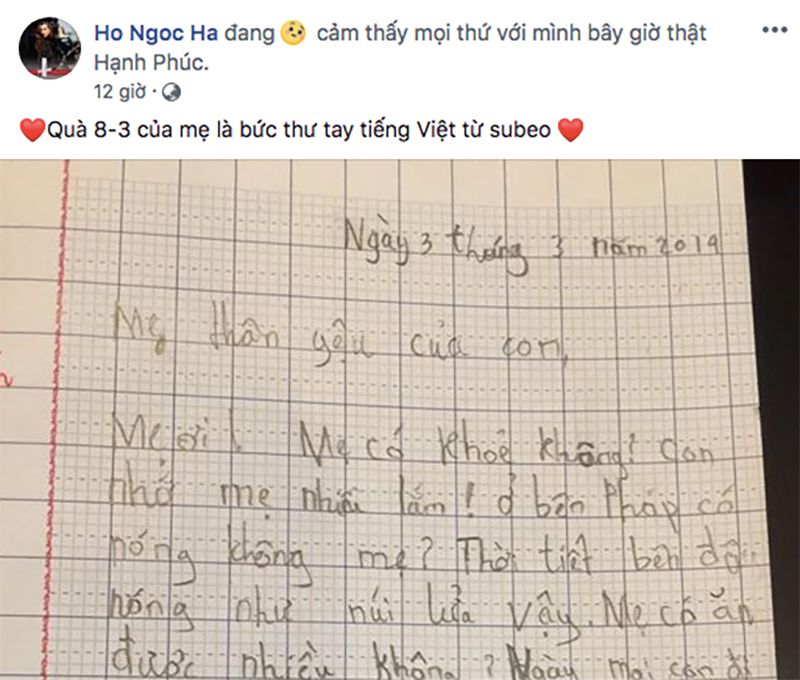 Ho Ngoc Ha đang 🥺 cảm thấy mọi thứ với mình bây giờ thật
Hạnh Phúc.
12 giờ ·
❤️Quà 8-3 của mẹ là bức thư tay tiếng Việt từ subeo ❤️
Ngày 3 tháng 3 năm 2019
Mẹ thân yêu của con,
Mẹ ơi! Mẹ có khoẻ không? Con
nhớ mẹ nhiều lắm! ở bên Pháp có
nóng không mẹ? Thời tiết bên đây
nóng như núi lửa vậy. Mẹ có ăn
được nhiều không? Ngày mai con đi